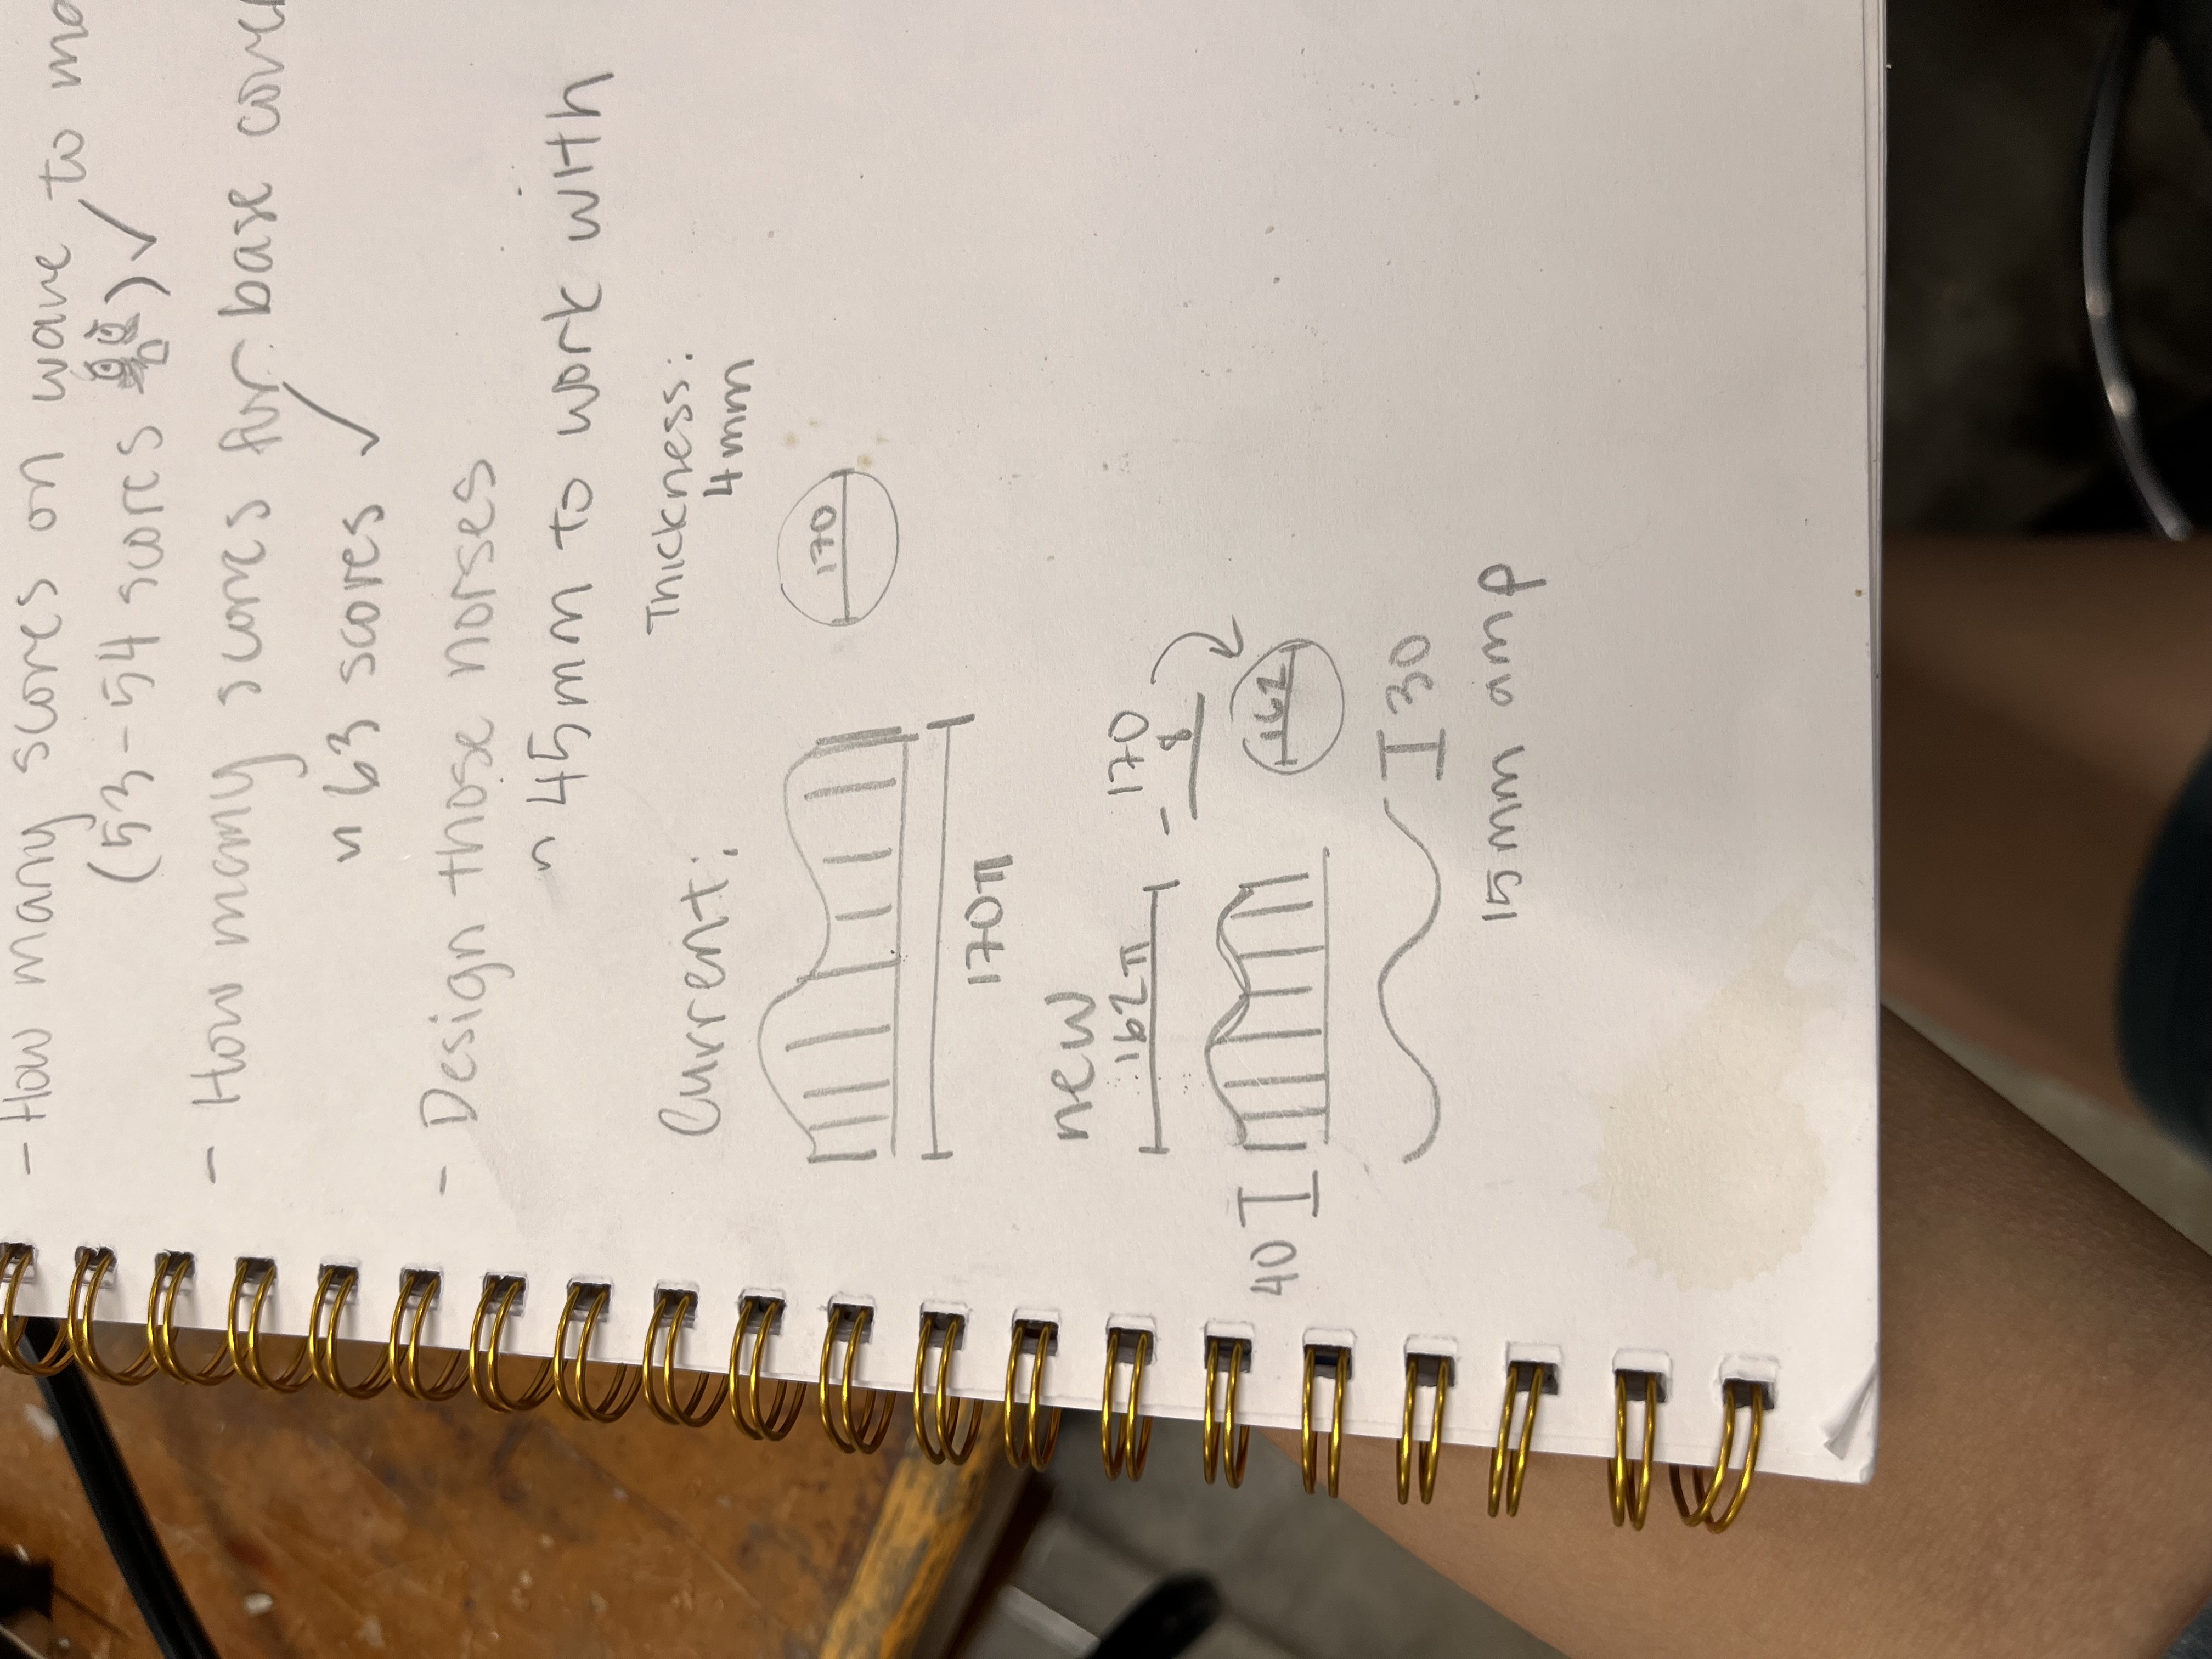 - How many scores on wave to
(53-54 scores) ✓
- How many scores for base
~ 63 scores ✓
- Design those norses
~ 45mm to work with
Current:
Thickness:
4mm
170
170π
new
162π
170
- 8
40
162
30
15mm amp